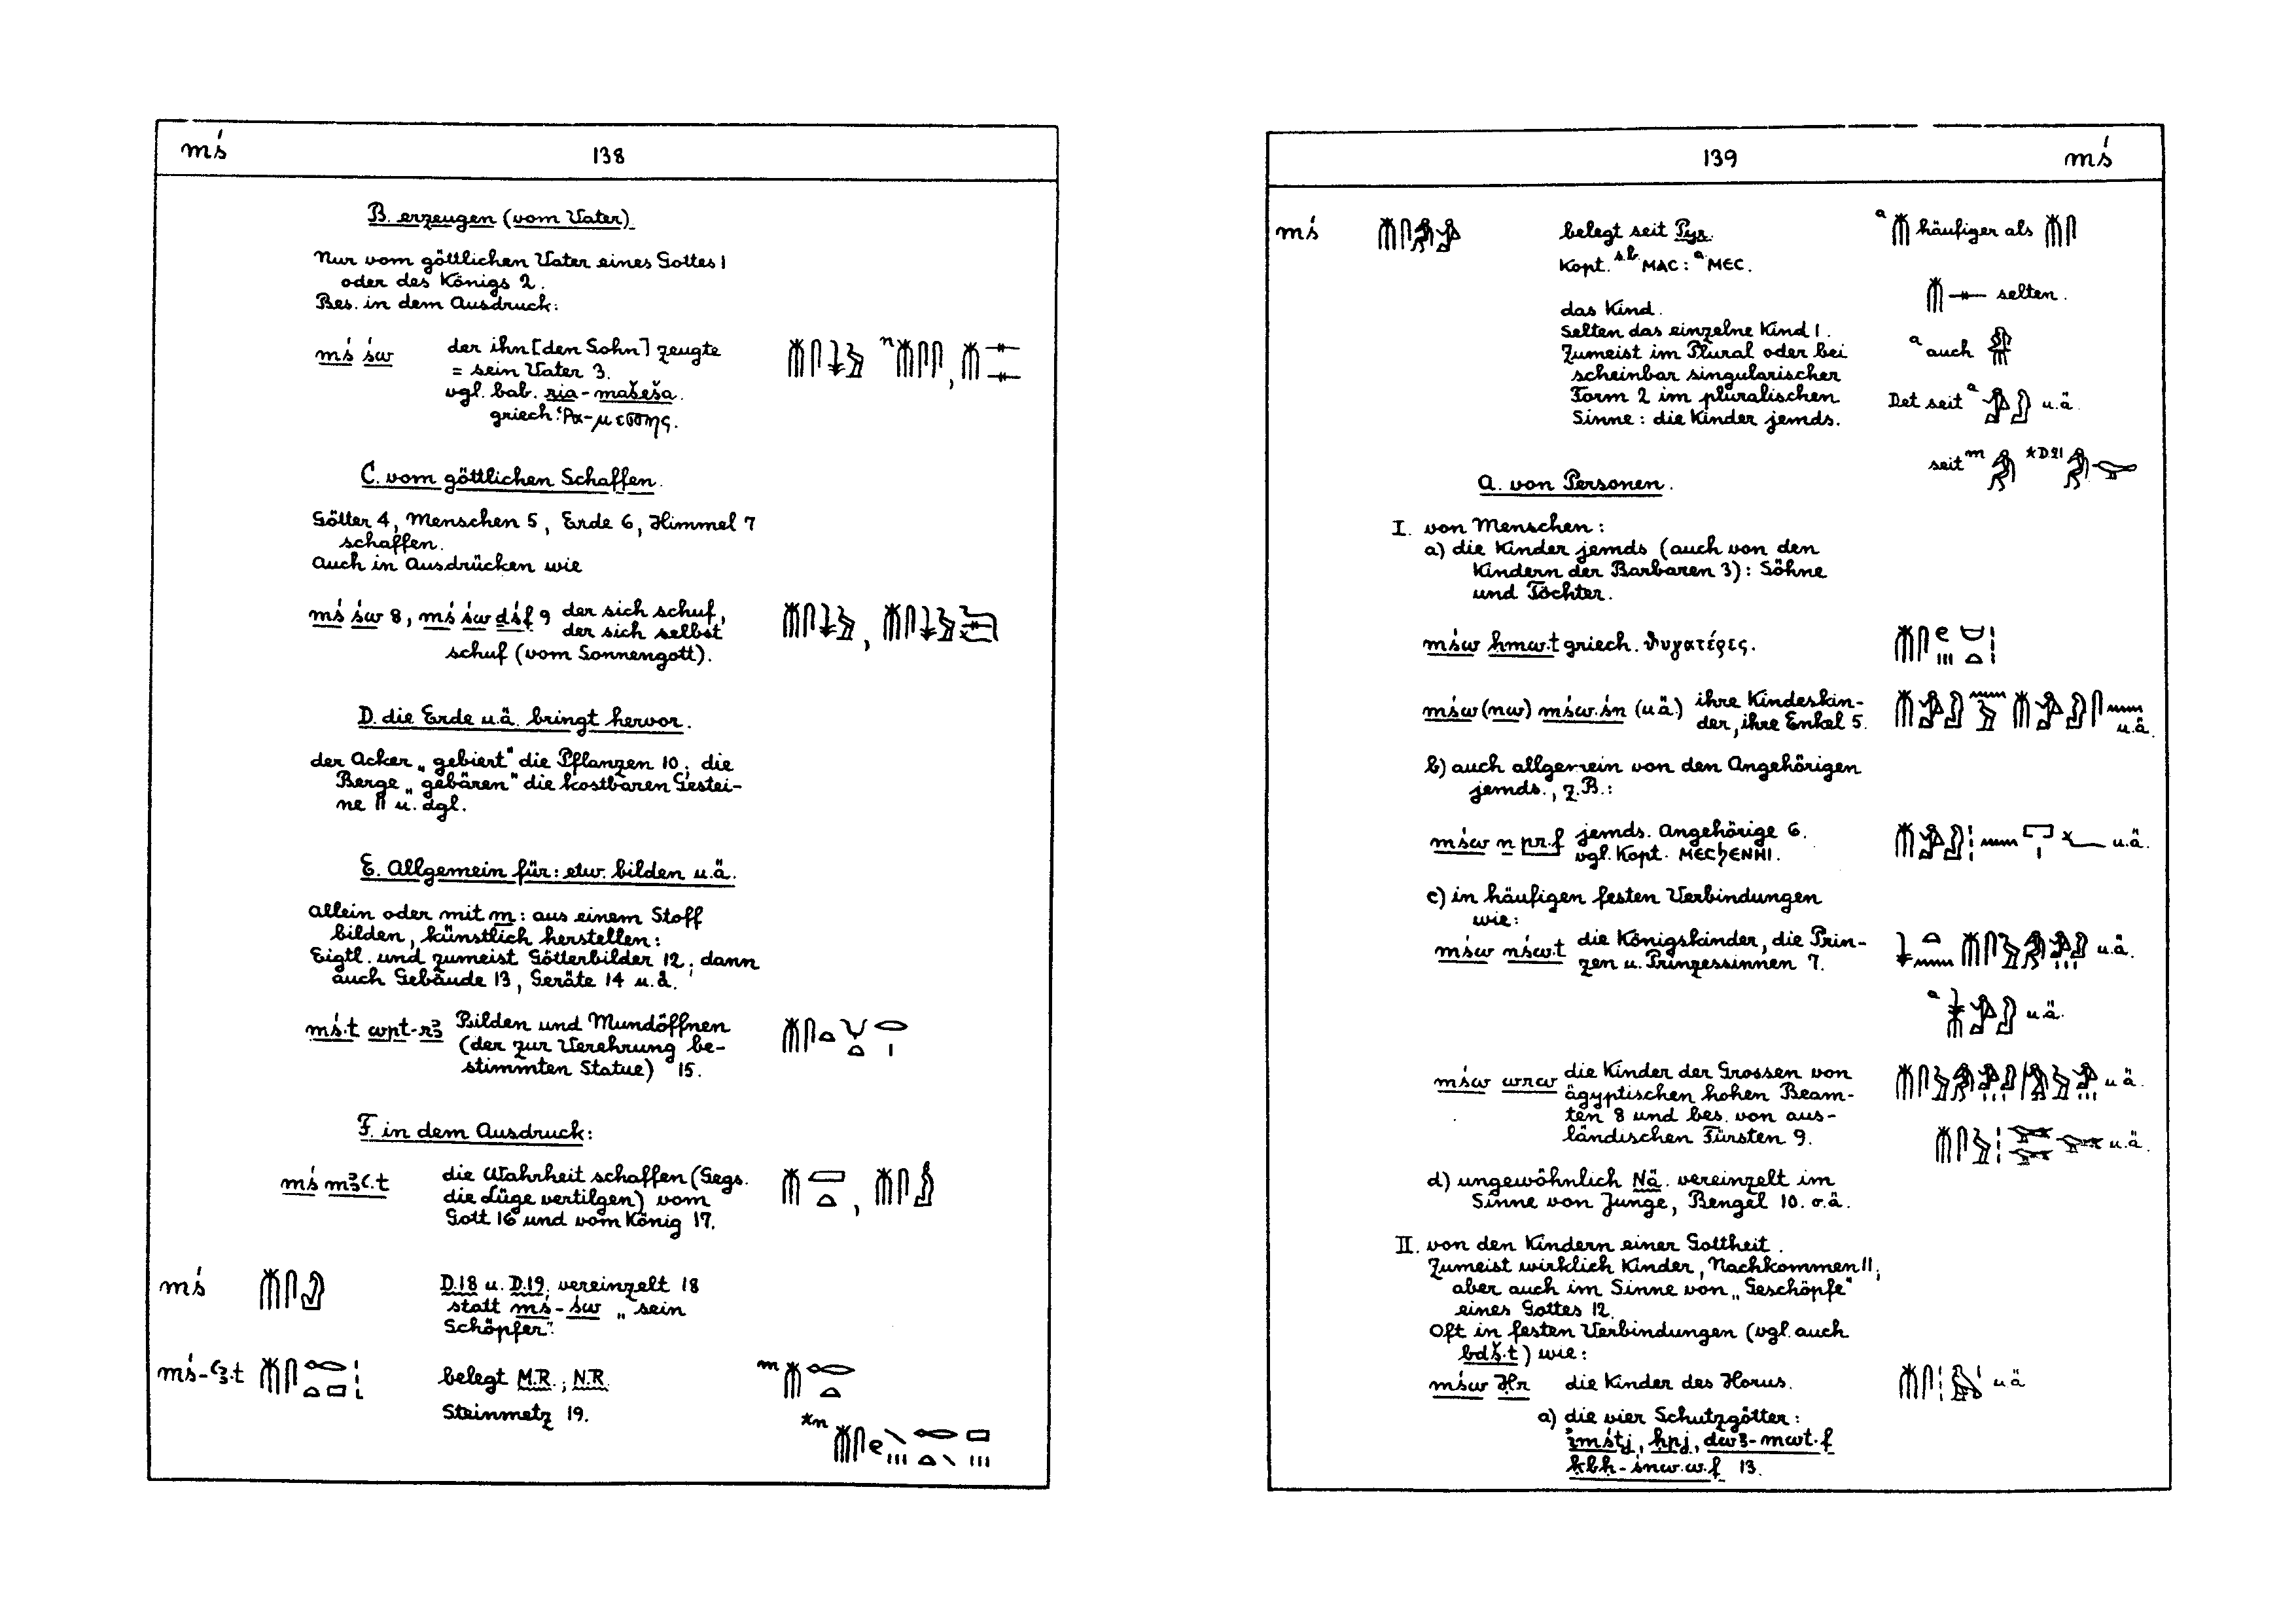 mś
138
B. erzeugen (vom Vater).
Nur vom göttlichen Vater eines Gottes 1
oder des Königs 2.
Bes. in dem Ausdruck:
mś św der ihn [den Sohn] zeugte
= sein Vater 3.
vgl. bab. ria-mašeša.
griech. Ῥα-μεσσης.
C. vom göttlichen Schaffen.
Götter 4, Menschen 5, Erde 6, Himmel 7
schaffen.
Auch in Ausdrücken wie
mś św 8, mś św ḏś.f 9 der sich schuf,
der sich selbst
schuf (vom Sonnengott).
D. die Erde u.ä. bringt hervor.
der Acker „gebiert" die Pflanzen 10; die
Berge „gebären" die kostbaren Gestei-
ne 11 u. dgl.
E. Allgemein für: etw. bilden u.ä.
allein oder mit m: aus einem Stoff
bilden, künstlich herstellen:
Eigtl. und zumeist Götterbilder 12; dann
auch Gebäude 13, Geräte 14 u.ä.
mś.t wpt-rꜣ Bilden und Mundöffnen
(der zur Verehrung be-
stimmten Statue) 15.
F. in dem Ausdruck:
mś mꜣꜥ.t die Wahrheit schaffen (Gegs.
die Lüge vertilgen) vom
Gott 16 und vom König 17.
mś D.18 u. D.19, vereinzelt 18
statt mś-św „sein
Schöpfer".
mś-ꜥꜣ.t belegt M.R.; N.R.
Steinmetz 19.
139
mś
mś belegt seit Pyr.
Kopt. s.b. ⲙⲁⲥ: a. ⲙⲉⲥ.
a häufiger als
selten.
das Kind.
Selten das einzelne Kind 1.
Zumeist im Plural oder bei
scheinbar singularischer
Form 2 im pluralischen
Sinne: die Kinder jemds.
a auch
Det seit a u.ä.
seit m *D21
A. von Personen.
I. von Menschen:
a) die Kinder jemds (auch von den
Kindern der Barbaren 3): Söhne
und Töchter.
mśw ḥmw.t griech. θυγατέρες.
mśw (nw) mśw.śn (u.ä.) ihre Kindeskin-
der, ihre Enkel 5.
u.ä.
b) auch allgemein von den Angehörigen
jemds., z.B.:
mśw n pr.f jemds. Angehörige 6.
vgl. Kopt. ⲙⲉⲥϩⲉⲛⲏⲓ.
u.ä.
c) in häufigen festen Verbindungen
wie:
mśw nśw.t die Königskinder, die Prin-
zen u. Prinzessinnen 7.
u.ä.
a u.ä.
mśw wrw die Kinder der Grossen von
ägyptischen hohen Beam-
ten 8 und bes. von aus-
ländischen Fürsten 9.
u.ä.
u.ä.
d) ungewöhnlich Nä. vereinzelt im
Sinne von Junge, Bengel 10. o.ä.
II. von den Kindern einer Gottheit.
Zumeist wirklich Kinder, Nachkommen 11;
aber auch im Sinne von „Geschöpfe"
eines Gottes 12.
Oft in festen Verbindungen (vgl. auch
bdš.t) wie:
mśw Ḥr die Kinder des Horus.
u.ä
a) die vier Schutzgötter:
imśtj, ḥpj, dwꜣ-mwt.f
ḳbḥ-śnw.w.f 13.